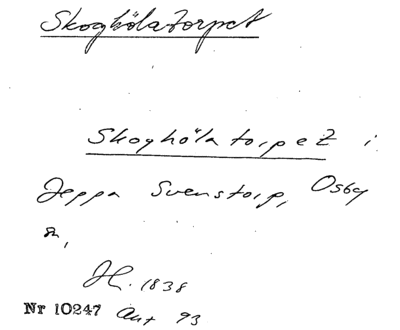 Skoghölatorpet
Skoghölatorpet i
Jeppa Svenstorp, Osby
sn,
H. 1838
Nr 10247 Ant 93